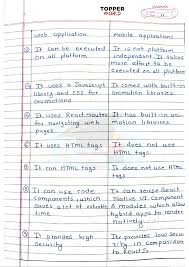 TOPPER
WORLD
Web application
Mobile applications
It can be executed
on all platform
It is not platform
independent It takes
more effort to be
executed on all platform
It uses a Javascript
library and CSS for
animations
It comes with built-in
animation libraries
It uses React-router
for navigating web
pages
It has built-in
libraries
It uses HTML tags
It does not use
HTML tags
It can HTML tags
It does not use HTML
tags
It can use code
components, which
saves a lot of valuable
time
It can reuse React
Native UI component
& modules which allow
hybrid apps to render
natively
It provides high
security
It provides low secu
rity in comparison
to ReactJS